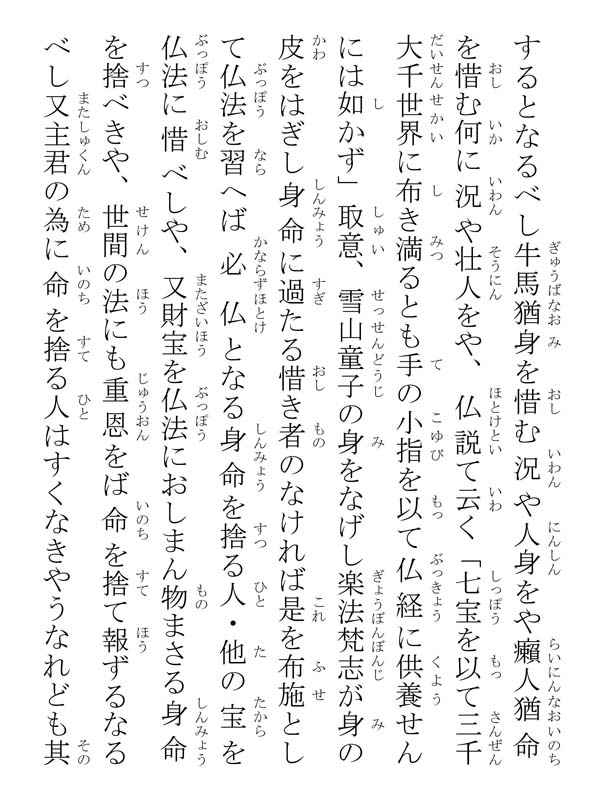 するとなるべし牛馬猶身を惜む況や人身をや癩人猶命
を惜む何に況や壮人をや、仏説て云く「七宝を以て三千
大千世界に布き満るとも手の小指を以て仏経に供養せん
には如かず」取意、雪山童子の身をなげし楽法梵志が身の
皮をはぎし身命に過たる惜き者のなければ是を布施とし
て仏法を習へば必仏となる身命を捨る人・他の宝を
仏法に惜べしや、又財宝を仏法におしまん物まさる身命
を捨べきや、世間の法にも重恩をば命を捨て報ずるなる
べし又主君の為に命を捨る人はすくなきやうなれども其